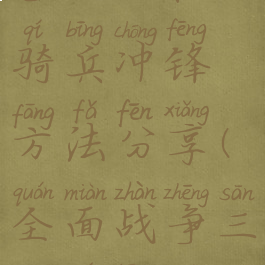 qí bīng chōng fēng
骑兵冲锋
fāng fǎ fēn xiǎng
方法分享(
quán miàn zhàn zhēng sān
全面战争三